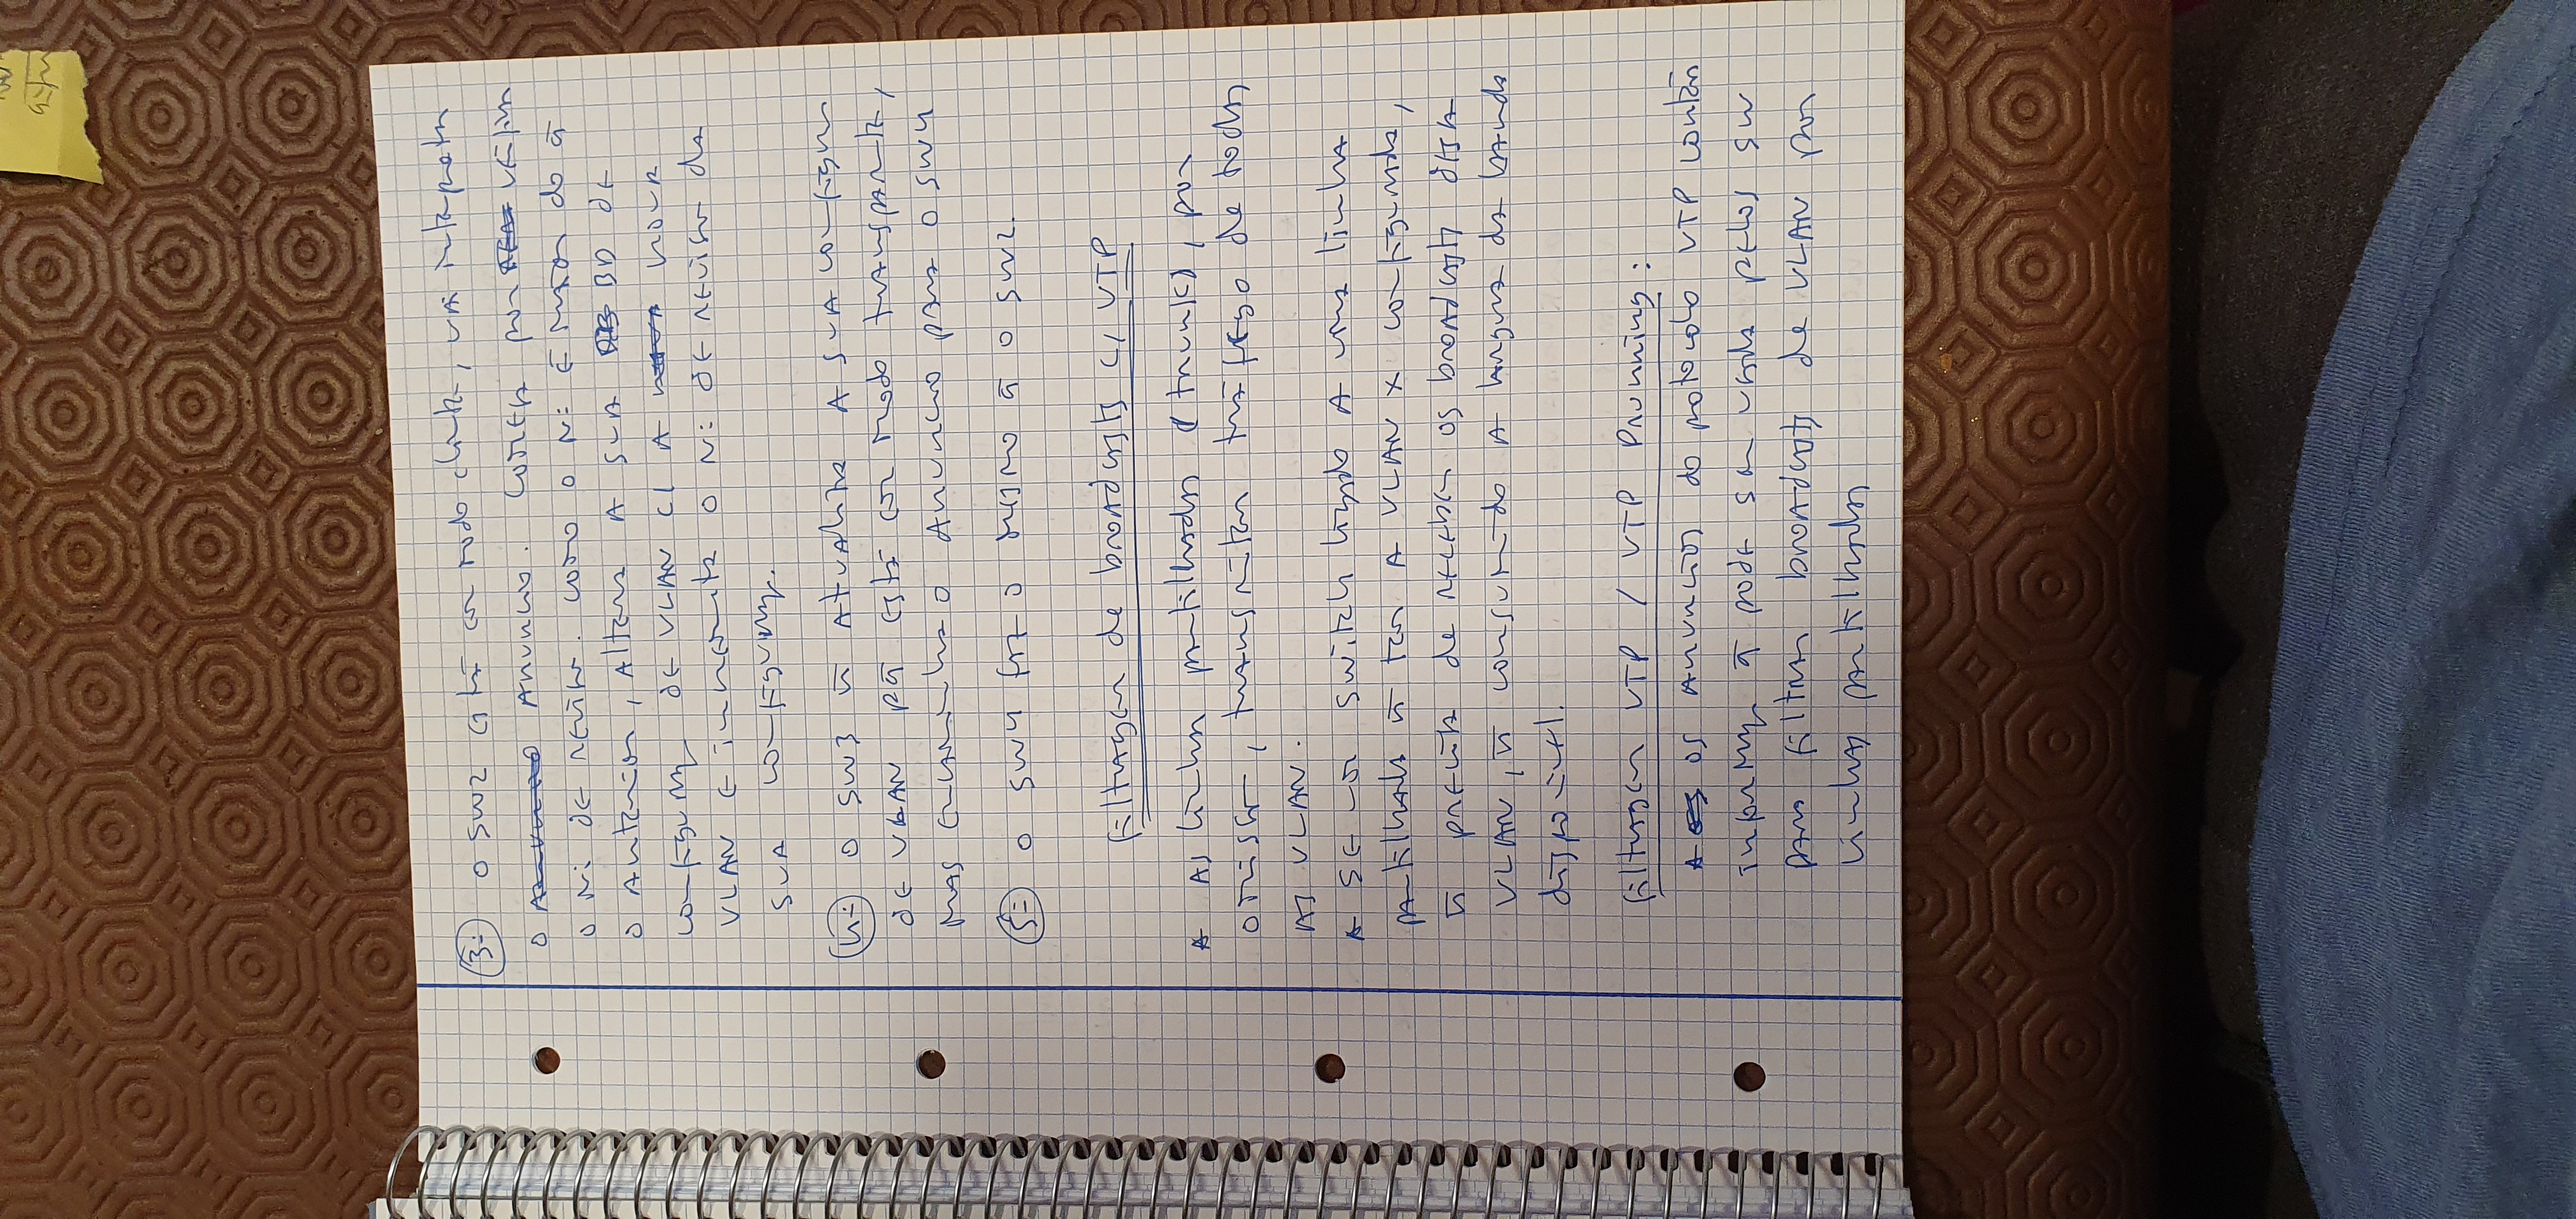 3- O SW2 está em modo cliente, vai interpretar
o anuncio. Começa por verificar
o Nº de revisão. Como o Nº é maior do q̃
o anterior, altera a sua BD de
configuraç de VLAN c/ a nova
VLAN e incrementa o Nº de revisão da
sua configuraç.
4- O SW3 ñ atualiza a sua configuraç
de VLAN pq̃ está em modo transparente,
mas encaminha o anuncio para o SW4
5- O SW4 faz o mesmo q̃ o SW2.
Filtragem de broadcasts c/ VTP
As linhas partilhadas (trunk), por
omissão, transmitem tráfego de todas
as VLAN.
Se um switch ligado a uma linha
partilhada ñ tem a VLAN X configurada,
ñ precisa de receber os broadcasts dessa
VLAN, ñ consumindo a largura da banda
disponivel.
Filtragem VTP / VTP Prunning:
os anuncios do protocolo VTP contêm
informaç q̃ pode ser usada pelos SW
para filtrar broadcasts de VLAN por
linhas partilhadas